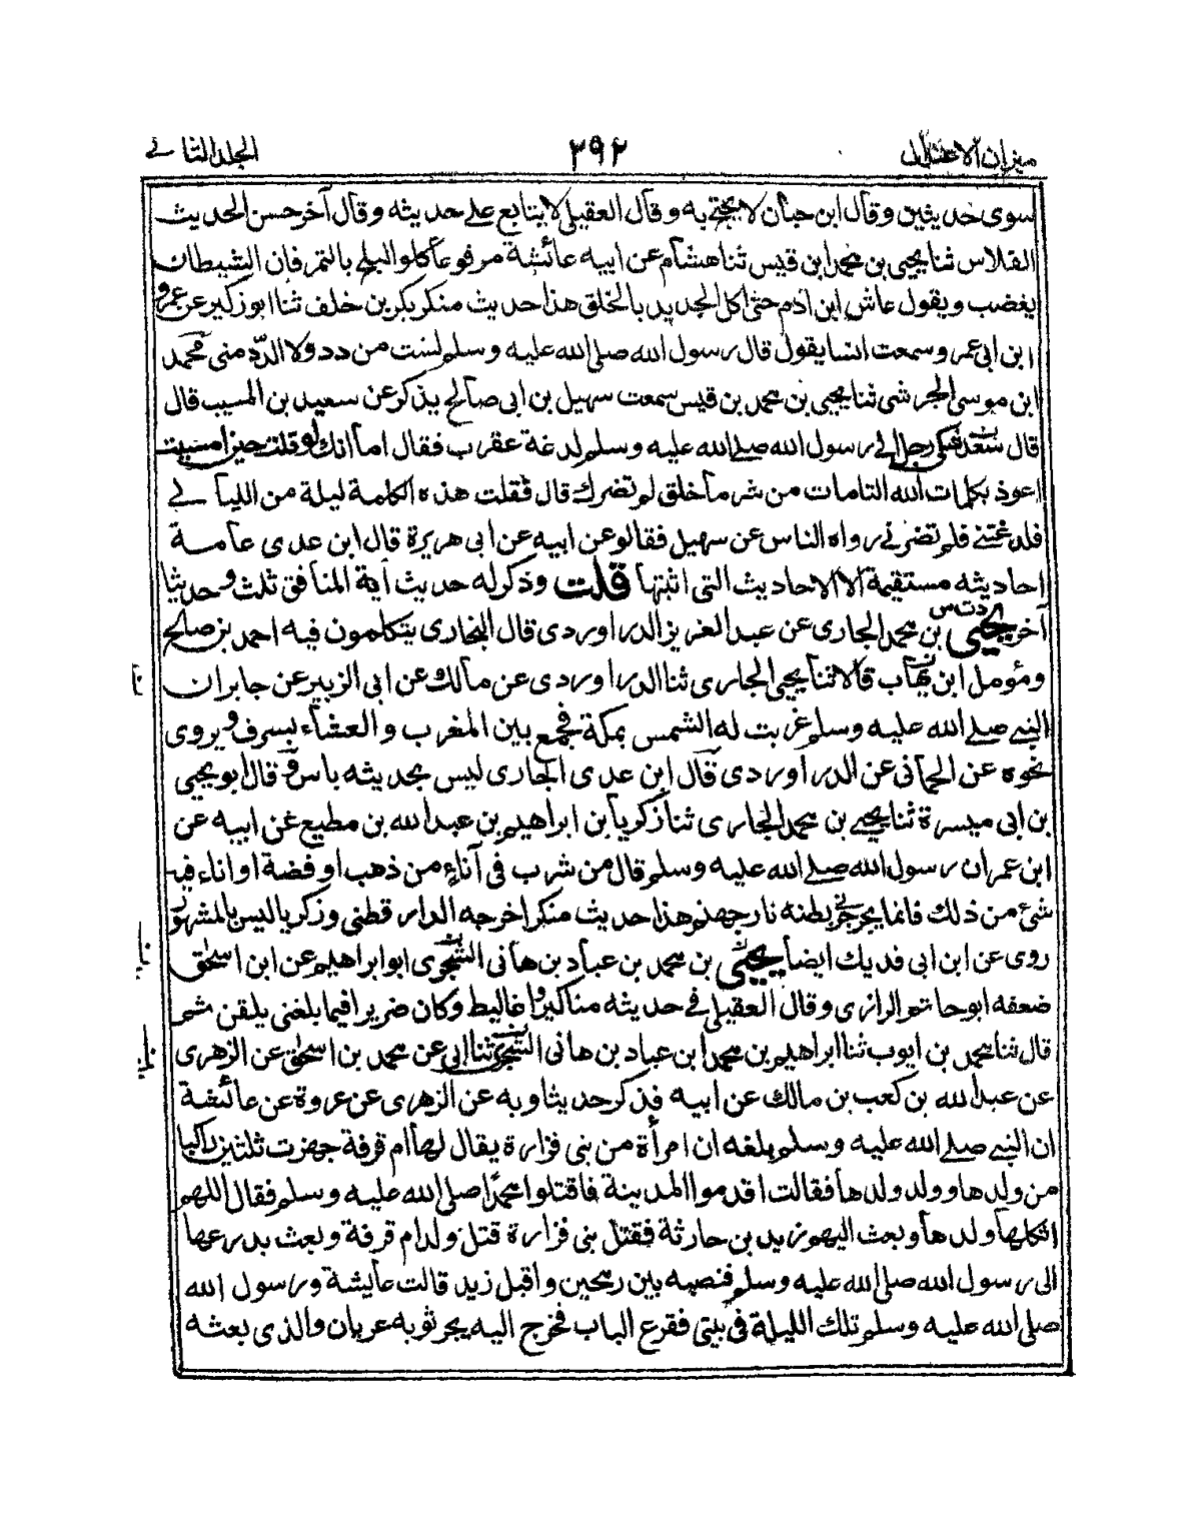 ميزان الاعتدال ٣٩٢ المجلد الثاني
سوى حديثين وقال ابن حبان لا يحتج به وقال العقيلي لا يتابع على حديثه وقال آخر حسن الحديث
الفلاس ثنا يحيى بن محمد ابن قيس ثنا هشام عن ابيه عائشة مرفوعا كلوا البلح بالتمر فان الشيطان
يغضب ويقول عاش ابن ادم حتى اكل الجديد بالخلق هذا حديث منكر بكر بن خلف ثنا ابو زكير عن عمرو
ابن ابى عمر وسمعت انسا يقول قال رسول الله صلى الله عليه وسلم لست من دد ولا الدد منى محمد
ابن موسى الجرشى ثنا يحيى بن محمد بن قيس سمعت سهيل بن ابى صالح يذكر عن سعيد بن المسيب قال
قال سعد شكى رجل الى رسول الله صلى الله عليه وسلم لدغة عقرب فقال اما انك لو قلت حين امسيت
اعوذ بكلمات الله التامات من شر ما خلق لم تضرك قال فقلت هذه الكلمة ليلة من الليالى
فلدغتنى فلم تضرنى رواه الناس عن سهيل فقالو عن ابيه عن ابى هريرة قال ابن عدى عامة
احاديثه مستقيمة الا الاحاديث التى اثبتها قلت وذكر له حديث آية المنافق ثلث وحديثا
آخر يحيى دت س بن محمد الجارى عن عبد العزيز الدراوردى قال البخارى يتكلمون فيه احمد بن صالح
ومؤمل ابن يهاب قالا ثنا يحيى الجارى ثنا الدراوردى عن مالك عن ابى الزبير عن جابر ان
النبي صلى الله عليه وسلم غربت له الشمس بمكة فجمع بين المغرب والعشاء بسرف ويروى
نحوه عن الحمانى عن الدراوردى قال ابن عدى الجارى ليس بحديثه باس وقال ابو يحيى
بن ابى ميسرة ثنا يحيى بن محمد الجارى ثنا زكريا بن ابراهيم بن عبد الله بن مطيع عن ابيه عن
ابن عمر ان رسول الله صلى الله عليه وسلم قال من شرب فى آناء من ذهب او فضة او اناء فيه
شئ من ذلك فانما يجرجر فى بطنه نار جهنم هذا حديث منكر اخرجه الدارقطنى وزكريا ليس بالمشهور
روى عن ابن ابى فديك ايضا يحيى بن محمد بن عباد بن هانى الشجرى ابو ابراهيم عن ابن اسحق
ضعفه ابو حاتم الرازى وقال العقيلى فى حديثه مناكير واغاليط وكان ضريرا فيما بلغنى يلقن ثم
قال ثنا محمد بن ايوب ثنا ابراهيم بن محمد ابن عباد بن هانى الشجرى ثنا ابى عن محمد بن اسحق عن الزهرى
عن عبد الله بن كعب بن مالك عن ابيه فذكر حديثا وبه عن الزهرى عن عروة عن عائشة
ان النبي صلى الله عليه وسلم بلغه ان امرأة من بنى فزارة يقال لها ام قرفة جهزت ثلثين راكبا
من ولدها وولد ولدها فقالت اقدموا المدينة فاقتلوا محمدا صلى الله عليه وسلم فقال اللهم
اثكلها ولدها وبعث اليهم زيد بن حارثة فقتل بنى فزارة قتل ولد ام قرفة وبعث بدرعها
الى رسول الله صلى الله عليه وسلم فنصبه بين رمحين واقبل زيد قالت عايشة ورسول الله
صلى الله عليه وسلم تلك الليلة فى بيتى فقرع الباب فخرج اليه يجر ثوبه عريان والذى بعثه